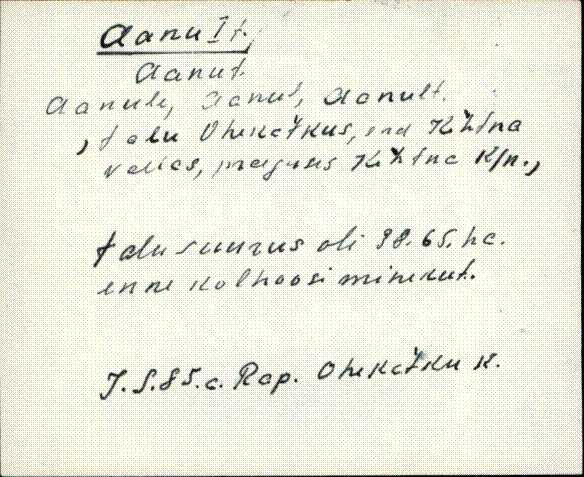 Aanu I t.,
Aanut.
Aanule, Aanul, Aanult.
, talu Ohekatkus, end Kehtna
vallas, praegusis Kehtna K/n.,
talu suurus oli 38.65. ha.
enne kolhoosi minekut.
J.S.85.a. Rap. Ohekatku k.